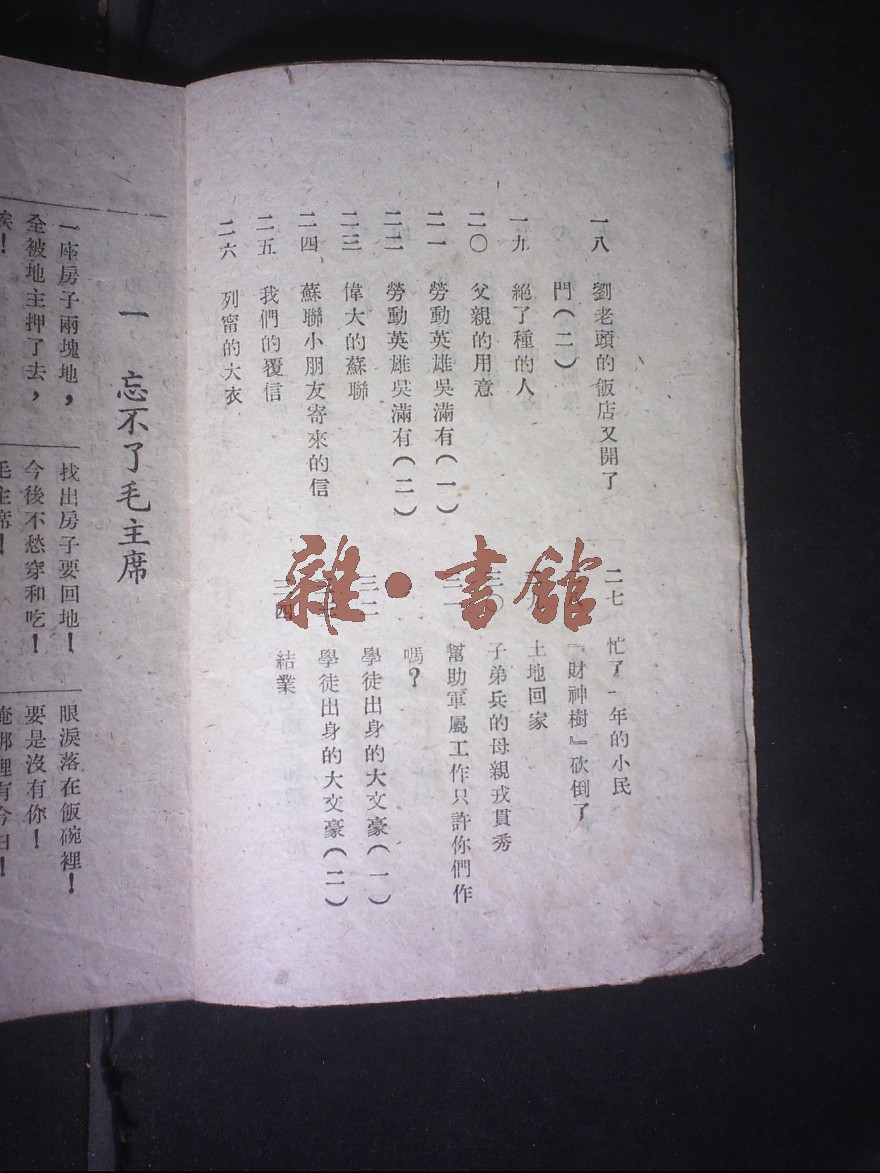 一八 劉老頭的飯店又開了
門(二)
一九 絕了種的人
二〇 父親的用意
二一 勞動英雄吳滿有(一)
二二 勞動英雄吳滿有(二)
二三 偉大的蘇聯
二四 蘇聯小朋友寄來的信
二五 我們的覆信
二六 列甯的大衣
二七 忙了一年的小民
『財神樹』砍倒了
土地回家
三〇 子弟兵的母親戎貫秀
幫助軍屬工作只許你們作
嗎?
三二 學徒出身的大文豪(一)
學徒出身的大文豪(二)
三四 結業
雜·書館
一 忘不了毛主席
一座房子兩塊地, 找出房子要回地! 眼淚落在飯碗裡!
全被地主押了去, 今後不愁穿和吃! 要是沒有你!
毛主席! 俺那裡有今日!